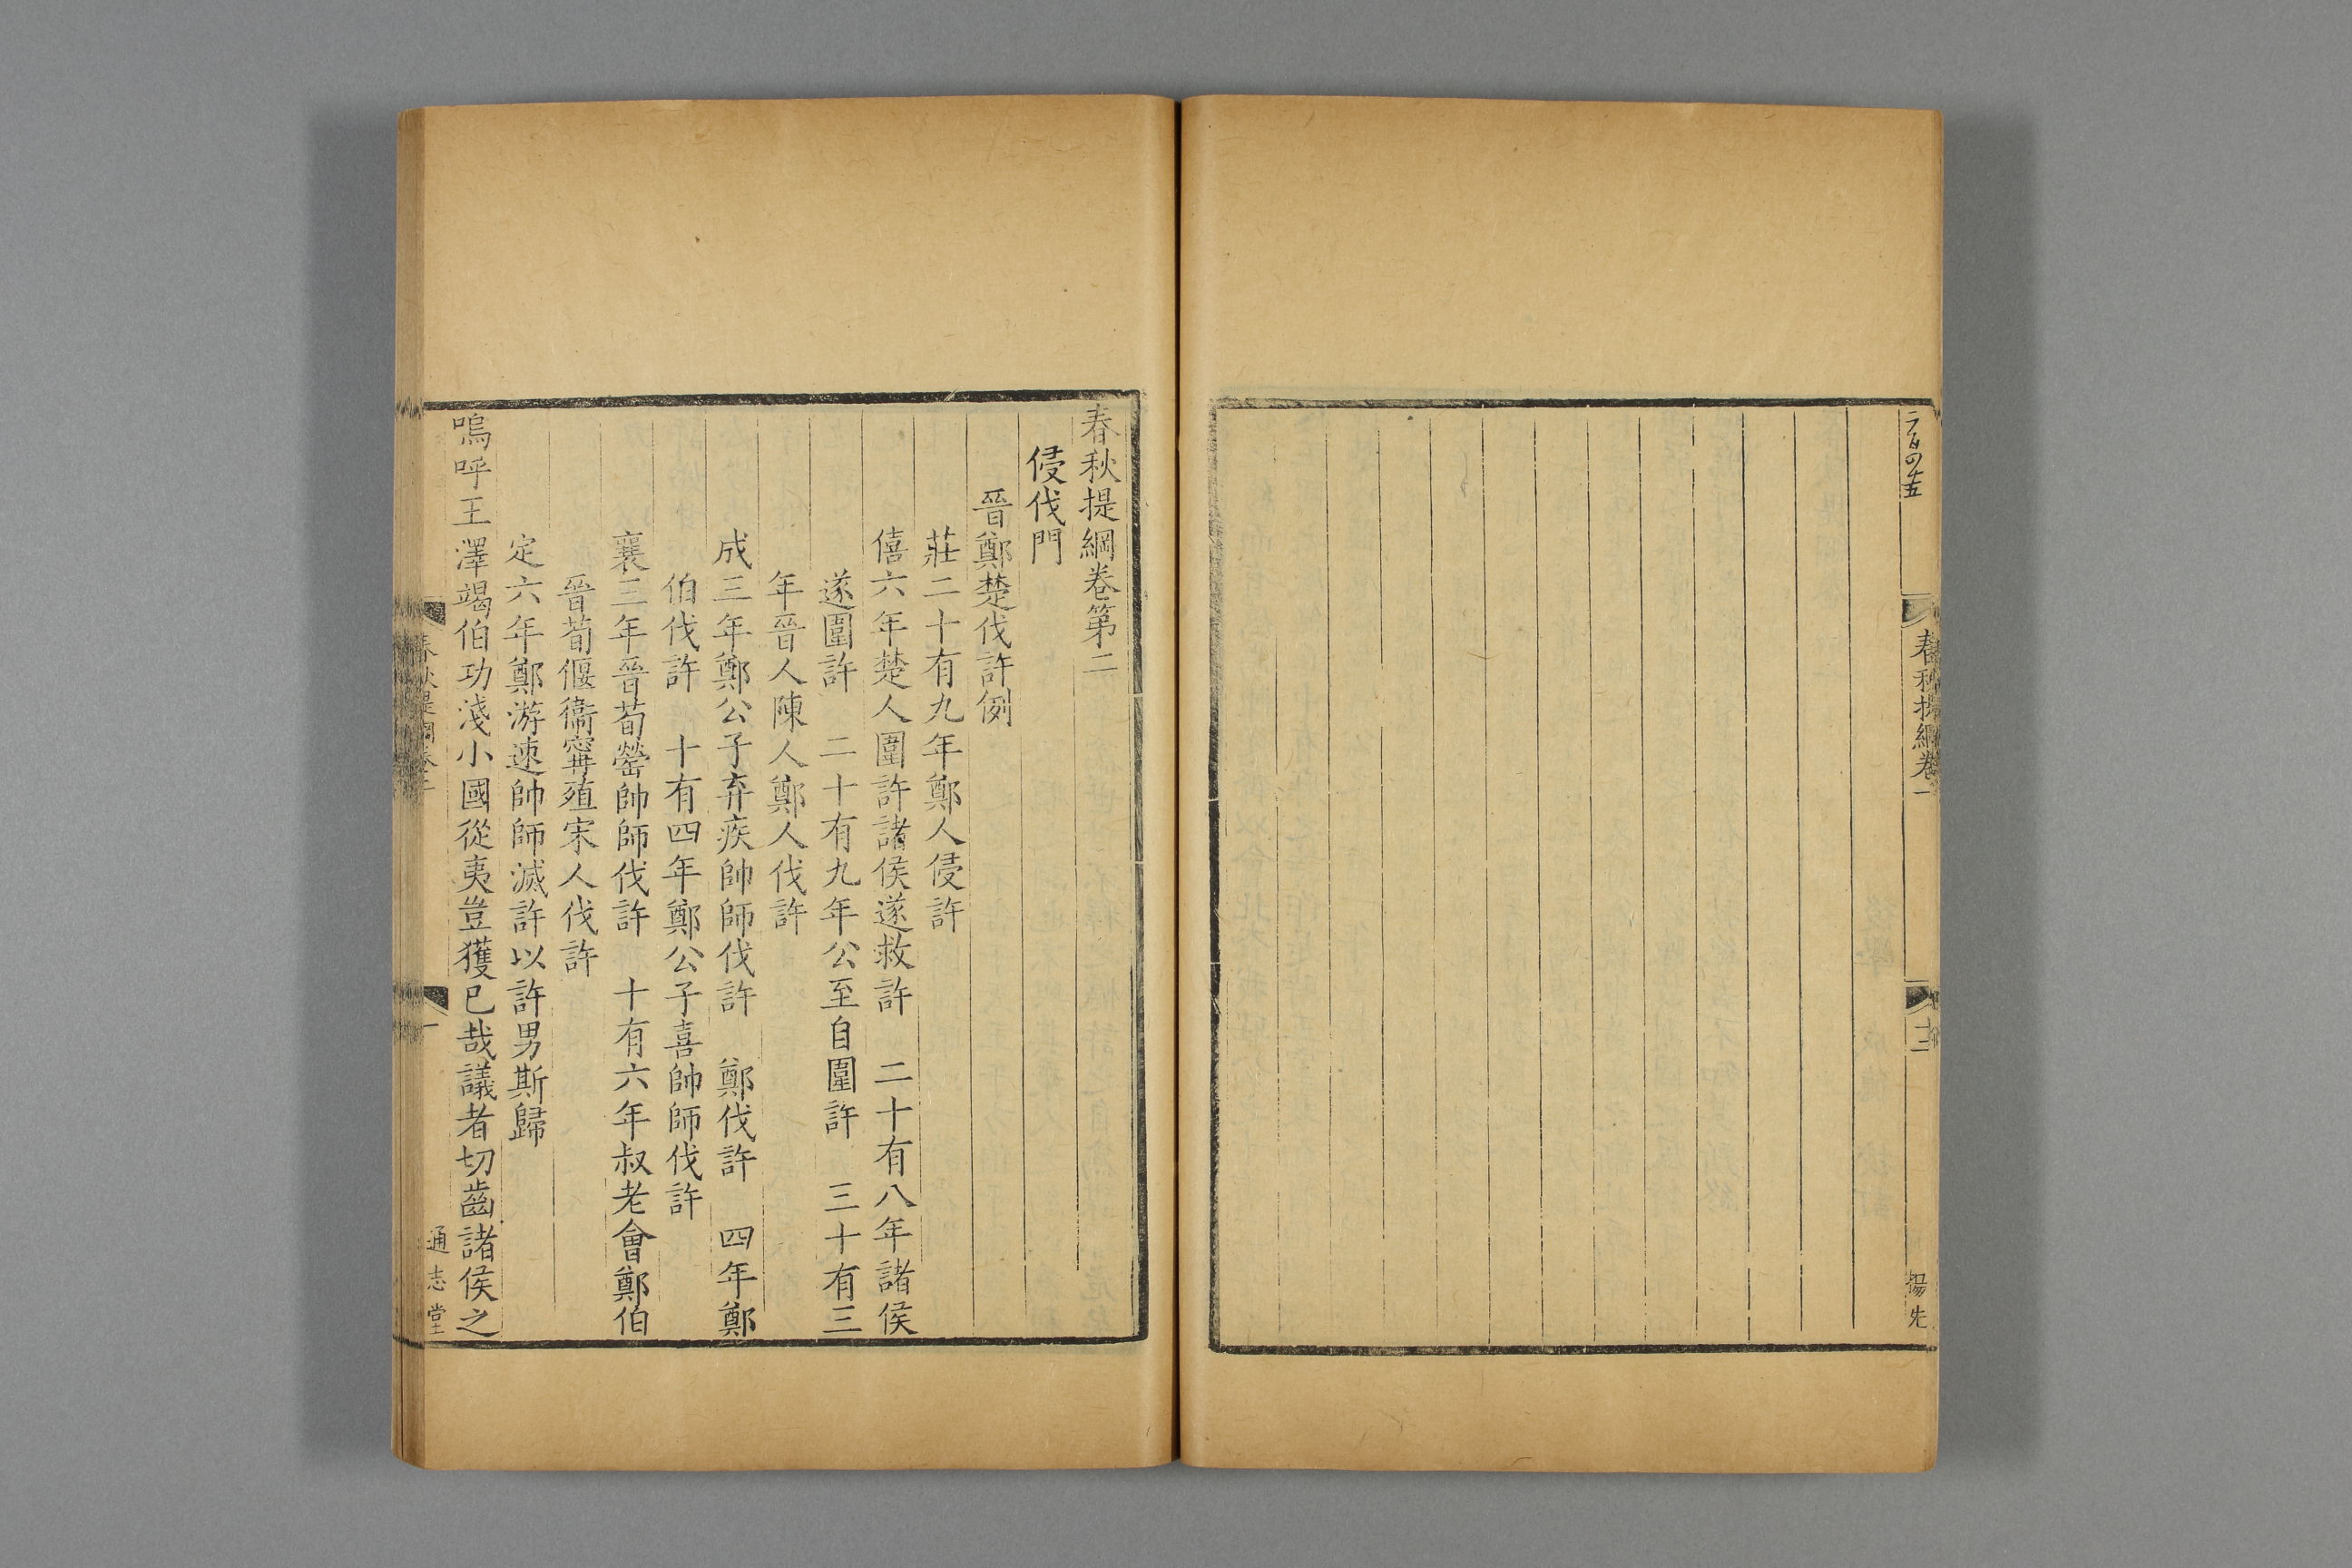 春秋提綱卷一
十二
楊先
春秋提綱卷第二
侵伐門
晉鄭楚伐許例
莊二十有九年鄭人侵許
僖六年楚人圍許諸侯遂救許　二十有八年諸侯
遂圍許　二十有九年公至自圍許　三十有三
年晉人陳人鄭人伐許
成三年鄭公子弃疾帥師伐許　鄭伐許　四年鄭
伯伐許　十有四年鄭公子喜帥師伐許
襄三年晉荀罃帥師伐許　十有六年叔老會鄭伯
晉荀偃衞甯殖宋人伐許
定六年鄭游速帥師滅許以許男斯歸
嗚呼王澤竭伯功淺小國從夷豈獲已哉議者切齒諸侯之
春秋提綱卷二
一
通志堂